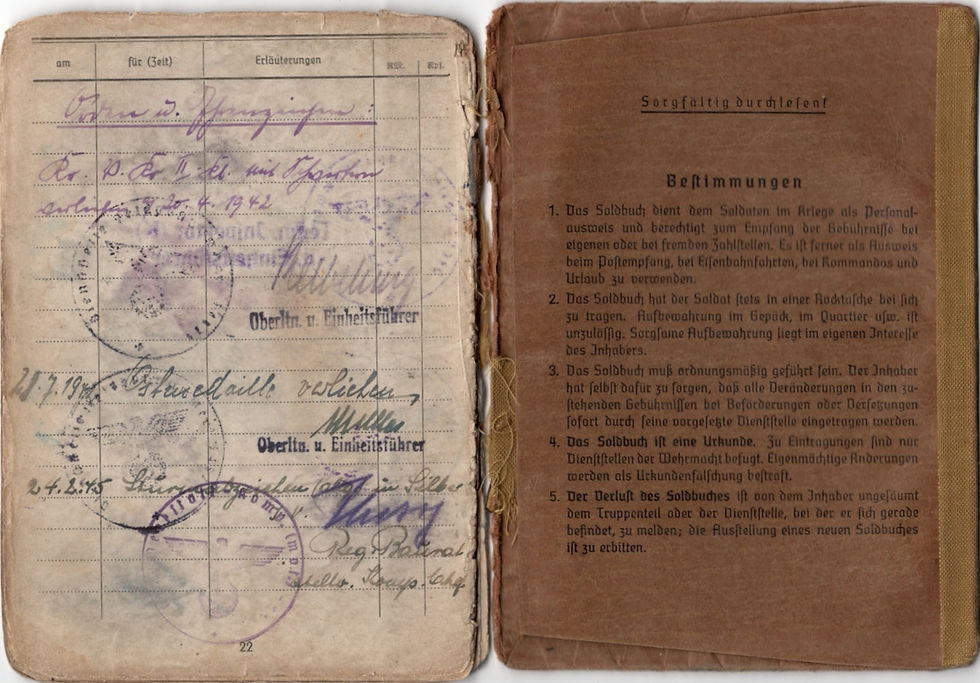 am für (Zeit) Erläuterungen RM. Rpf.
Orden u. Ehrenzeichen:
Kr. V. Kr. II. Kl. mit Schwertern
verliehen 20.4.1942
Oberltn. u. Einheitsführer
Ostmedaille verliehen
Oberltn. u. Einheitsführer
24.2.45 Sturmabzeichen in Silber
Reg. Baurat
stellv. Komp. Chef
22
Sorgfältig durchlesen!
Bestimmungen
1. Das Soldbuch dient dem Soldaten im Kriege als Personal-
ausweis und berechtigt zum Empfang der Gebührnisse bei
eigenen oder bei fremden Zahlstellen. Es ist ferner als Ausweis
beim Postempfang, bei Eisenbahnfahrten, bei Kommandos und
Urlaub zu verwenden.
2. Das Soldbuch hat der Soldat stets in einer Rocktasche bei sich
zu tragen. Aufbewahrung im Gepäck, im Quartier usw. ist
unzulässig. Sorgsame Aufbewahrung liegt im eigenen Interesse
des Inhabers.
3. Das Soldbuch muß ordnungsmäßig geführt sein. Der Inhaber
hat selbst dafür zu sorgen, daß alle Veränderungen in den zu-
stehenden Gebührnissen bei Beförderungen oder Versetzungen
sofort durch seine vorgesetzte Dienststelle eingetragen werden.
4. Das Soldbuch ist eine Urkunde. Zu Eintragungen sind nur
Dienststellen der Wehrmacht befugt. Eigenmächtige Änderungen
werden als Urkundenfälschung bestraft.
5. Der Verlust des Soldbuches ist von dem Inhaber ungesäumt
dem Truppenteil oder der Dienststelle, bei der er sich gerade
befindet, zu melden; die Ausstellung eines neuen Soldbuches
ist zu erbitten.